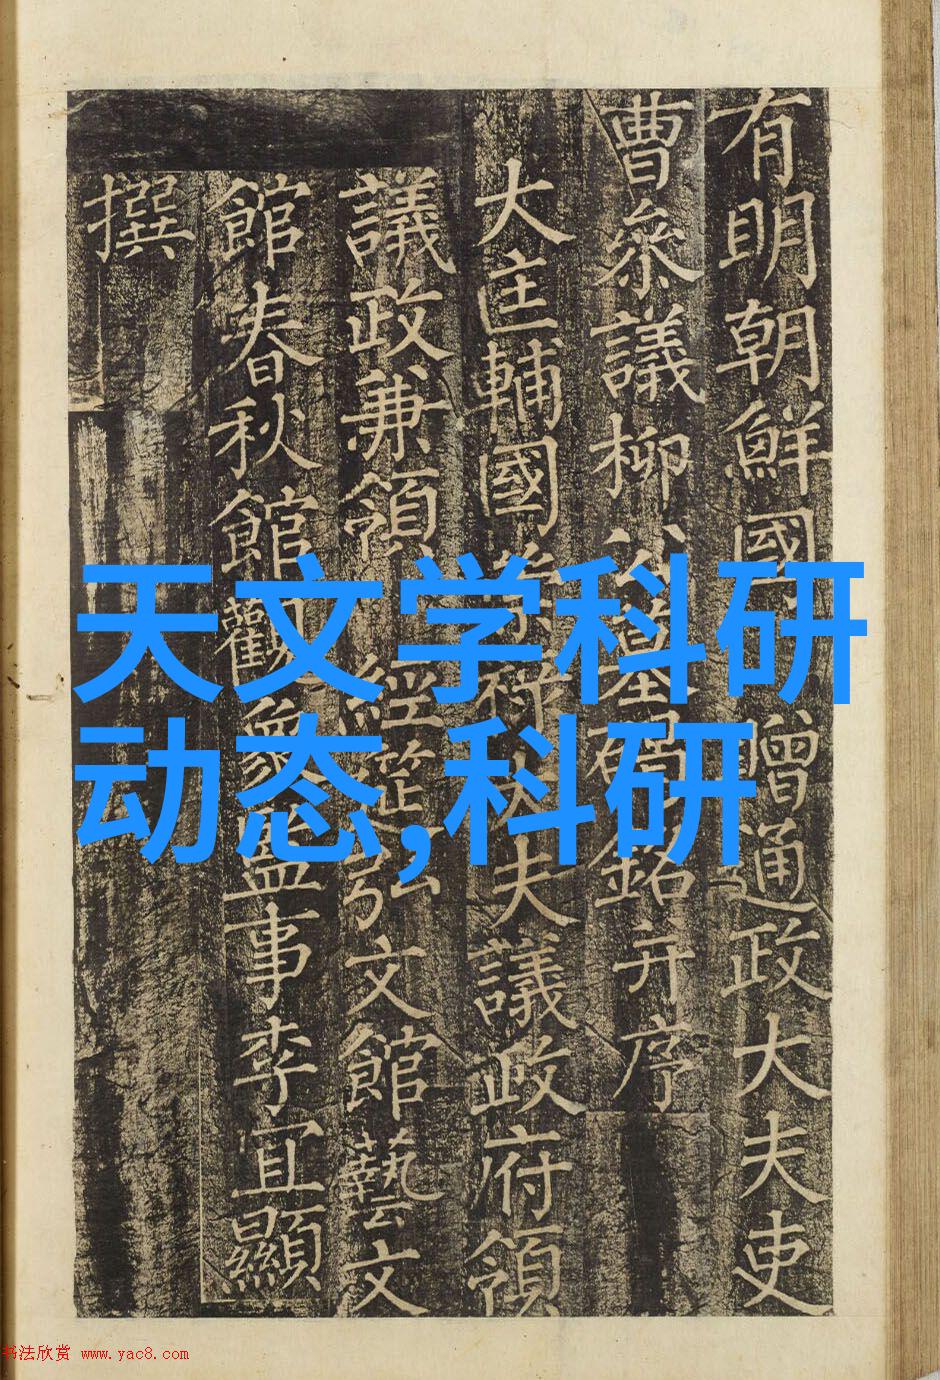 有明朝鮮國贈通政大夫吏
曹叅議柳公墓碣銘并序
大匡輔國崇祿大夫議政府領
議政兼領經筵弘文館藝文
館春秋館觀象監事李宜顯
撰
天文学科研
动态,科研
书法欣赏 www.yac8.com